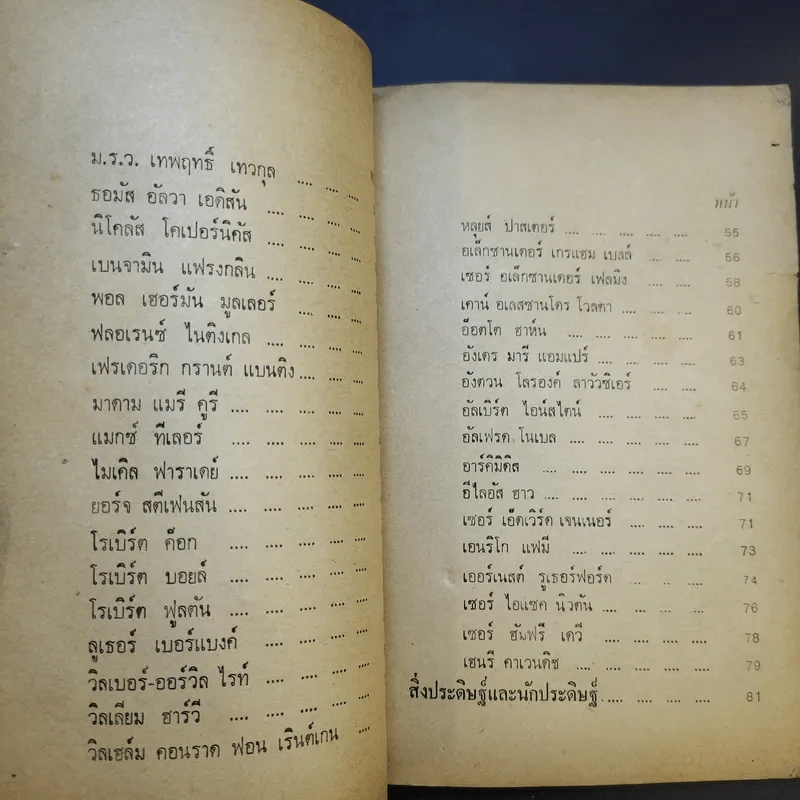 ม.ร.ว. เทพฤทธิ์ เทวกุล .... .... ....
ธอมัส อัลวา เอดิสัน .... .... ....
นิโคลัส โคเปอร์นิคัส .... .... ....
เบนจามิน แฟรงกลิน .... .... ....
พอล เฮอร์มัน มูลเลอร์ .... .... ....
ฟลอเรนซ์ ไนติงเกล .... .... ....
เฟรเดอริก กรานต์ แบนติง .... .... ....
มาดาม แมรี คูรี .... .... .... ....
แมกซ์ ทีเลอร์ .... .... .... ....
ไมเคิล ฟาราเดย์ .... .... .... ....
ยอร์จ สตีเฟนสัน .... .... .... ....
โรเบิร์ต ค็อก .... .... .... ....
โรเบิร์ต บอยล์ .... .... .... ....
โรเบิร์ต ฟูลตัน .... .... .... ....
ลูเธอร์ เบอร์แบงค์ .... .... ....
วิลเบอร์-ออร์วิล ไรท์ .... .... ....
วิลเลียม ฮาร์วี .... .... .... ....
วิลเฮล์ม คอนราด ฟอน เรินต์เกน ....
หน้า
หลุยส์ ปาสเตอร์ .... .... .... .... .... 55
อเล็กซานเดอร์ เกรแฮม เบลล์ .... .... 56
เซอร์ อเล็กซานเดอร์ เฟลมิง .... .... 58
เคาน์ อเลสซานโดร โวลตา .... .... 60
อ็อตโต ฮาห์น .... .... .... .... 61
อังเดร มารี แอมแปร์ .... .... .... .... 63
อังตวน โลรองค์ ลาวัวซิเอร์ .... .... .... 64
อัลเบิร์ต ไอน์สไตน์ .... .... .... .... 65
อัลเฟรด โนเบล .... .... .... .... .... 67
อาร์คิมิดิส .... .... .... .... .... 69
อีไลอัส ฮาว .... .... .... .... .... 71
เซอร์ เอ็ดเวิร์ด เจนเนอร์ .... .... .... .... 71
เอนริโก แฟมี .... .... .... .... .... 73
เออร์เนสต์ รูเธอร์ฟอร์ด .... .. .... 74
เซอร์ ไอแซค นิวตัน .... .... ... .... 76
เซอร์ ฮัมฟรี เดวี .... .... .... .... 78
เฮนรี คาเวนดิช .... .... .... .... .... 79
สิ่งประดิษฐ์และนักประดิษฐ์ .... .... .... .... 81